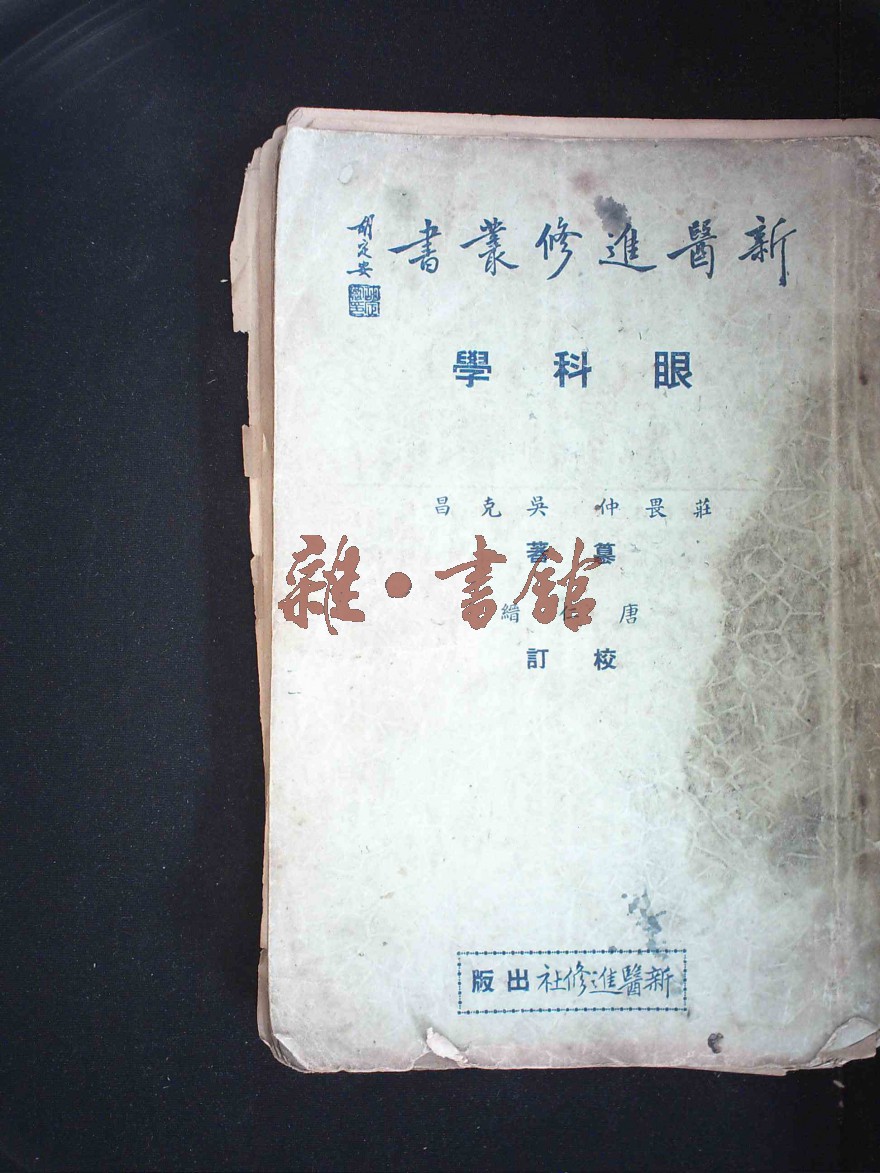 新醫進修叢書
胡定安
眼科學
莊畏仲 吳克昌
纂著
唐仁縉
校訂
新醫進修社出版
雜·書館